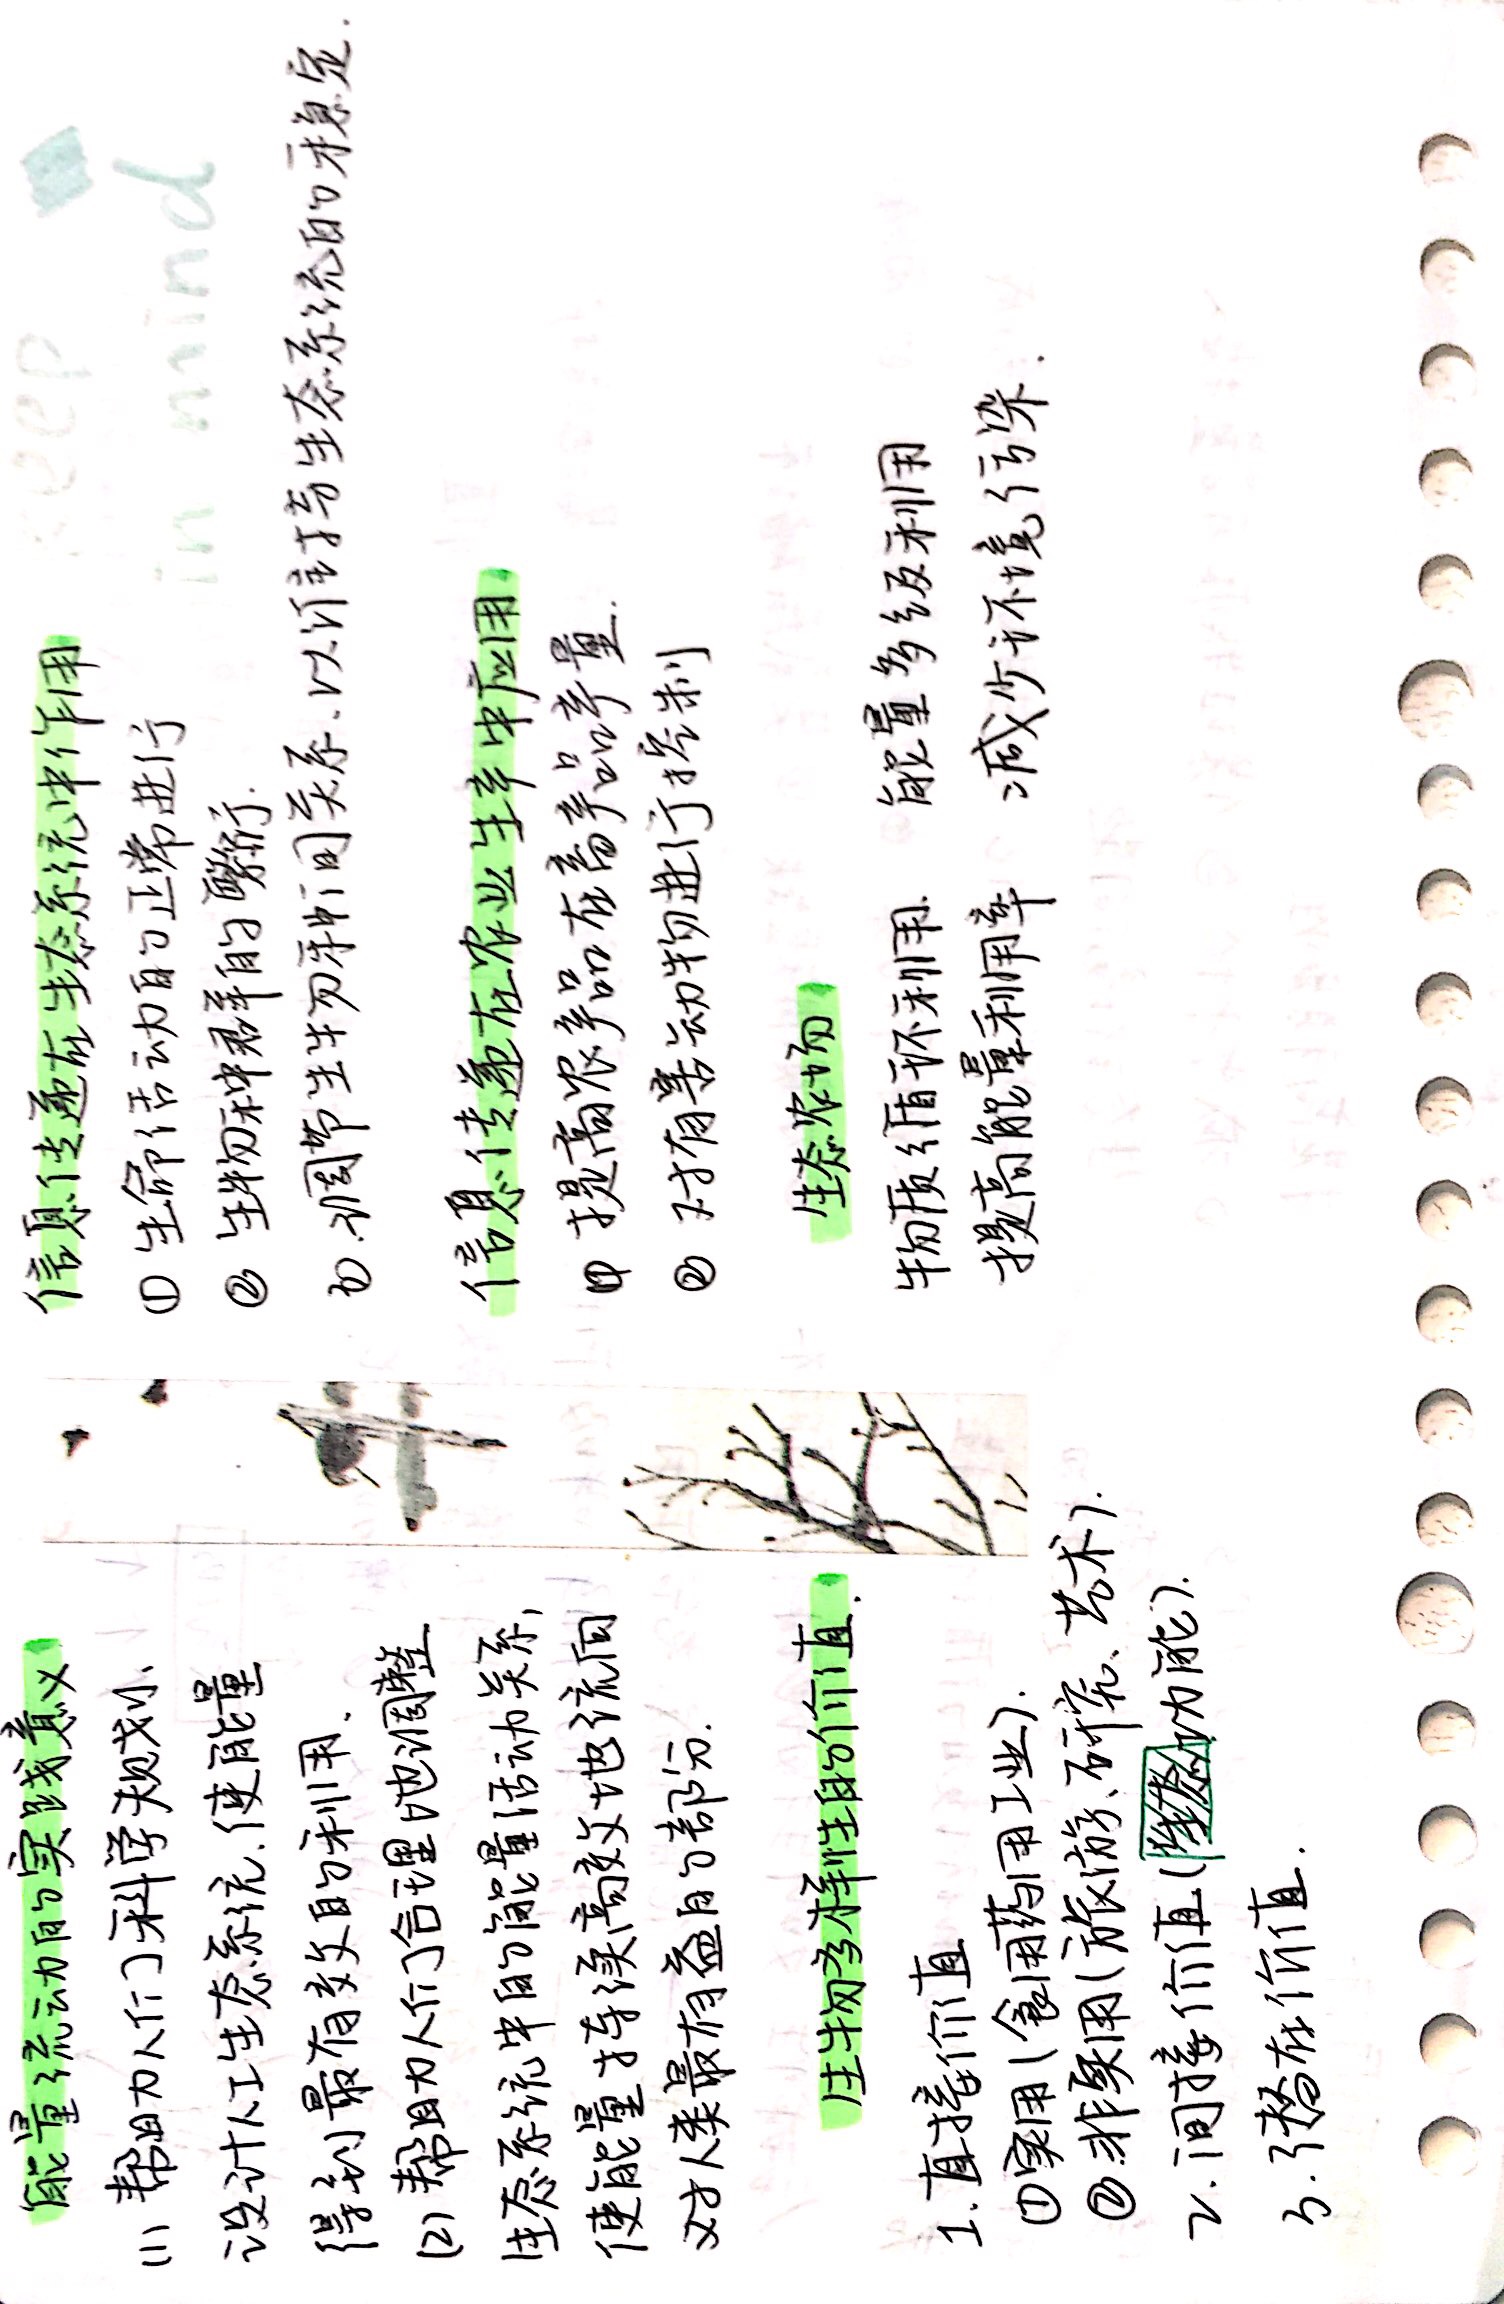 能量流动的实践意义
(1) 帮助人们科学规划、
设计人工生态系统、使能量
得到最有效的利用.
(2) 帮助人们合理地调整
生态系统中的能量活动关系,
使能量持续高效地流向
对人类最有益的部分.
生物多样性的价值.
1. 直接价值
①实用(食用药用工业).
②非实用(旅游、研究、艺术).
2. 间接价值(生态功能).
3. 潜在价值.
keep
in mind
信息传递在生态系统中作用
① 生命活动的正常进行
② 生物种群的繁衍.
③ 调节生物种间关系、以维持生态系统的稳定.
信息传递在农业生产中应用
① 提高农产品在畜产品产量.
② 对有害动物进行控制
生态农场
物质循环利用. 能量多级利用
提高能量利用率 减少环境污染.